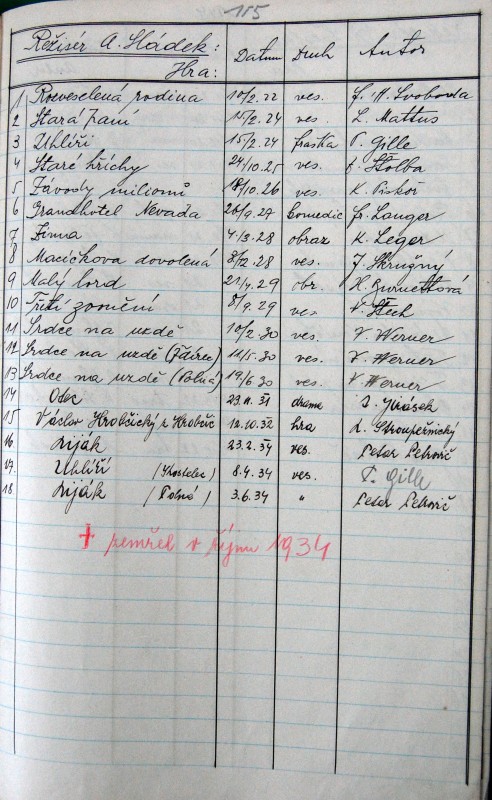 115
Režisér A. Sládek: Datum Druh Autor
Hra:
1 Rozveselená rodina 10/2.22 ves. F. X. Svoboda
2 Stará paní 15/2.24 ves. L. Mattus
3 Uhlíři 15/2.24 fraška P. Gille
4 Staré hříchy 24/10.25 ves. J. Štolba
5 Závody milionů 18/10.26 ves. K. Piskoř
6 Grandhotel Nevada 26/9.27 komedie Fr. Langer
7 Zimna 4./3.28 obraz K. Leger
8 Macíčkova dovolená 8/12.28 ves. J. Skružný
9 Malý lord 21/4.29 obr. K. Burnettová
10 Třetí zvonění 8/9.29 ves V. Štech
11 Srdce na uzdě 10/2 30 ves. V. Werner
12 Srdce na uzdě (Ždírec) 11/5.30 ves. V. Werner
13 Srdce na uzdě (Polná) 19/6 30 ves. V. Werner
14 Otec 29.11.31 drama J. Jirásek
15 Václav Hrobčický z Hrobčic 12.10.32 hra L. Stroupežnický
16. Liják 23.2.34 ves. Petar Petrovič
17. Uhlíři (Kostelec) 8.4.34 ves. P. Gille
18. Liják (Polná) 3.6.34 " Petar Petrovič
+ zemřel v říjnu 1934